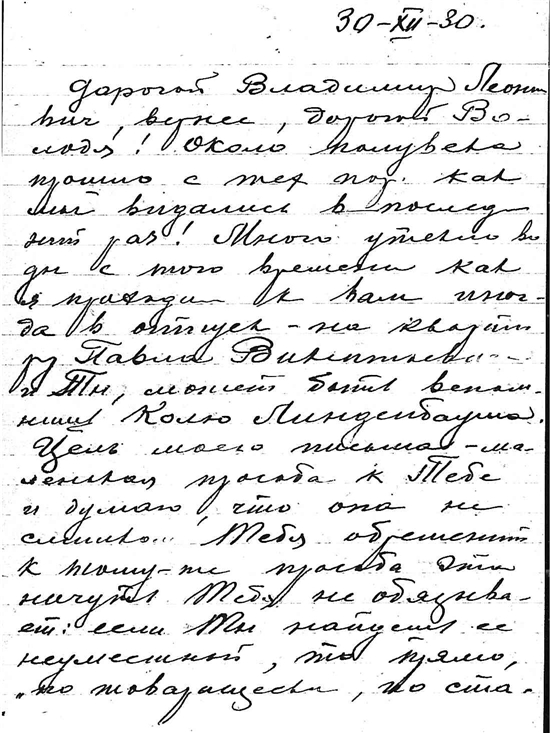 30-XII-30.
Дорогой Владимир Леонть
вич, вернее, дорогой Во-
лодя! Около полувека
прошло с тех пор. как
мы видались в послед
ний раз! Много утекло во
ды с того времени как
я приходил к вам иног-
да в отпуск - на кварти
ру Павла
и Ты, может быть вспом-
нишь Колю Линденбаума.
Цель моего письма - ма-
ленькая просьба к Тебе
и думаю, что она не
слишком Тебя обременит
к тому-же просьба эта
ничуть Тебя не обязыва-
ет: если Ты найдешь ее
неуместной, то прямо,
"по товарищески, по ста-